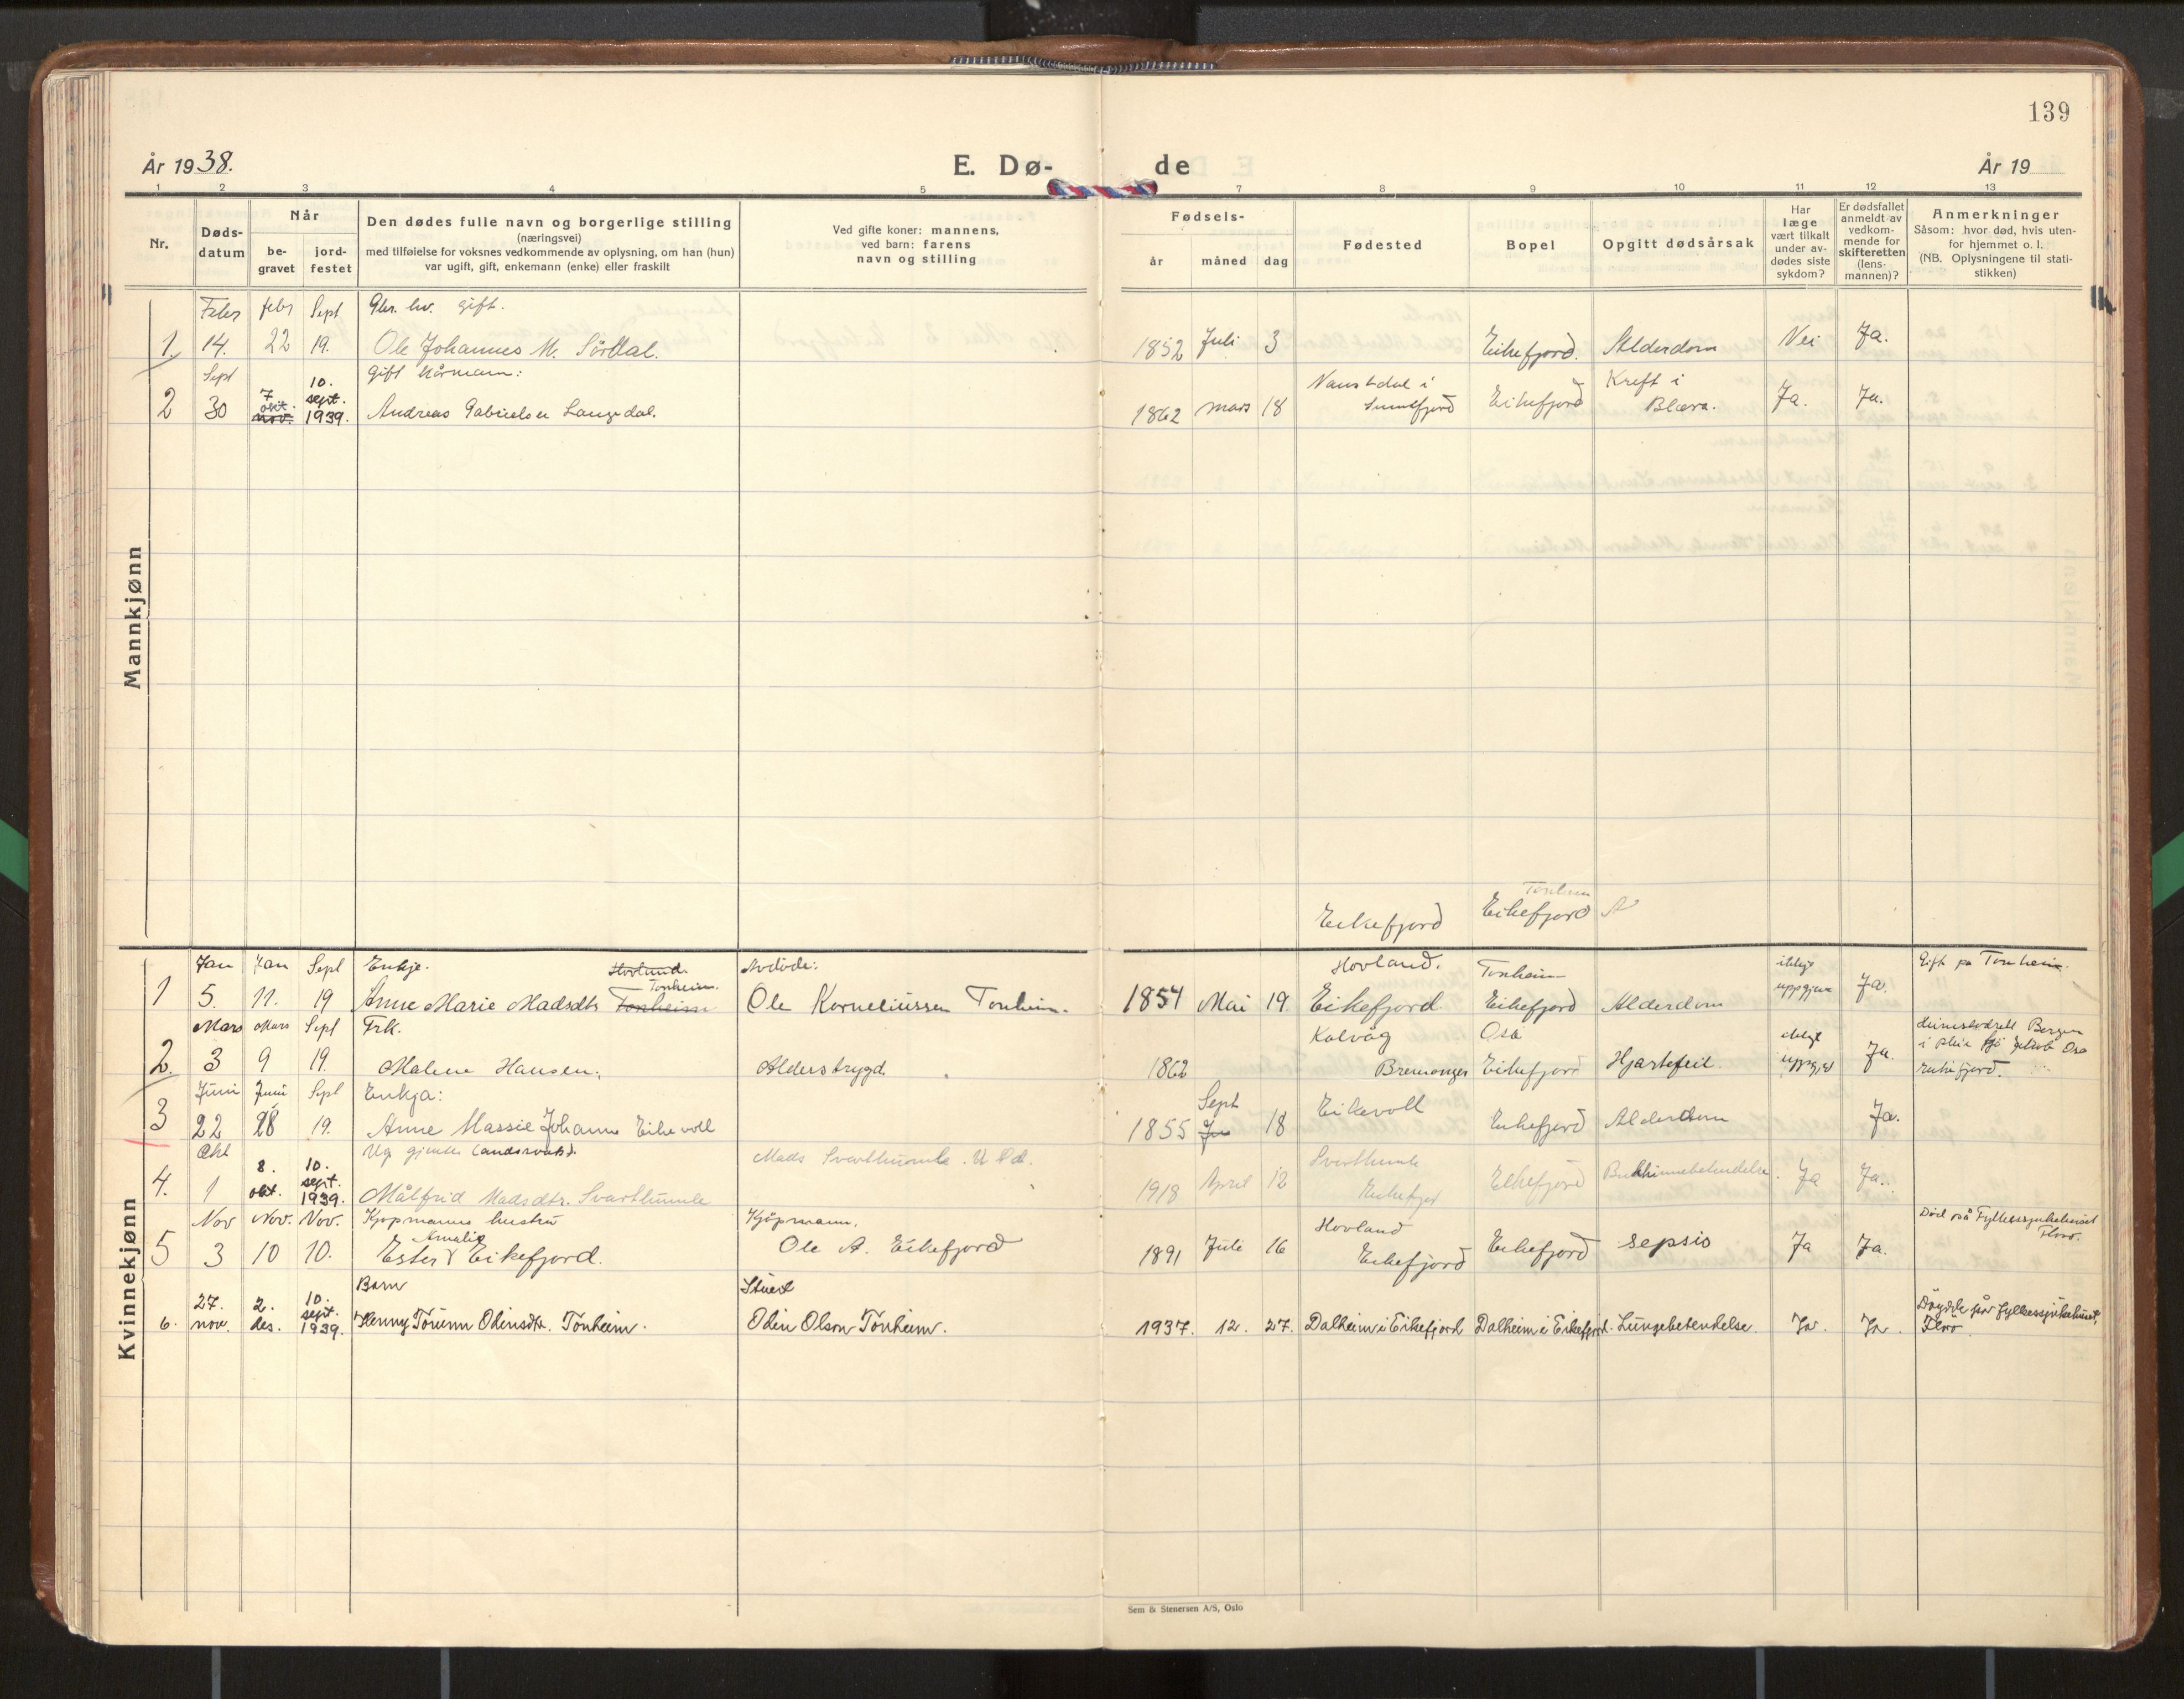 139
År 1938.
E. Dø-
de
År 19
1 2 3 4 5 7 8 9 10 11 12 13
Nr.
Døds-
datum
Når
be-
gravet
jord-
festet
Den dødes fulle navn og borgerlige stilling
(næringsvei)
med tilføielse for voksnes vedkommende av oplysning, om han (hun)
var ugift, gift, enkemann (enke) eller fraskilt
Ved gifte koner: mannens,
ved barn: farens
navn og stilling
Fødsels-
år måned dag
Fødested
Bopel
Opgitt dødsårsak
Har
læge
vært tilkalt
under av-
dødes siste
sykdom?
Er dødsfallet
anmeldt av
vedkom-
mende for
skifteretten
(lens-
mannen)?
Anmerkninger
Såsom: hvor død, hvis uten-
for hjemmet o. l.
(NB. Oplysningene til stati-
stikken)
Mannkjønn
Febr febr Sept gift.
1. 14. 22 19. Ole Johannes M. Sørdal. 1852 Juli 3 Eikefjord. Alderdom Nei Ja.
Sept 10. Gift Kårmann: Naustdal i Kreft i
2 30 7 okt. nov. sept. 1939. Andreas Gabrielsen Langedal. 1862 mars 18 Sunnfjord Eikefjord Blæra. Ja. Ja.
Tonheim
Eikefjord Eikefjord A
Kvinnekjønn
Jan Jan Sept Enkje. Hovland Avdøde: Hovland. Tonheim ikkje Gift på Tonheim.
Tonheim.
1 5. 11. 19 Anne Marie Madsdtr Tonheim Ole Korneliussen Tonheim. 1854 Mai 19. Eikefjord Eikefjord Alderdom uppgjeve Ja.
Mars Mars Sept Frk. Kalvåg Osa ikkje Bergen
2. 3 9 19. Malene Hansen. Alderstrygd. 1862 Bremanger Eikefjord Hjartefeil. Ja. Eikefjord.
Juni Juni Sept Enkja: Sept Eikevoll
3 22 28 19. Anne Massie Johanne Eikevoll 1855 18 Eikefjord Alderdom Ja.
Okt 8. 10. Ug gjente Mads Svarthumle. Svarthumle
4. 1 okt. sept. 1939. Målfrid Madsdtr. Svarthumle 1918 April 12 Eikefjord Eikefjord Bukhinnebetendelse. Ja Ja.
Nov Nov. Nov. Kjøpmanns hustru Kjøpmann. Hovland Død på Fylkessjukehuset
Amalie Florø.
5 3 10 10. Ester Eikefjord. Ole A. Eikefjord 1891 Juli 16 Eikefjord Eikefjord Sepsis Ja Ja.
Barn
27. 2. 10.
6. nov. des. sept. 1939. Henny Torunn Odinsdtr. Tonheim. Odin Olson Tonheim. 1937. 12. 27. Dalheim i Eikefjord Dalheim i Eikefjord. Lungebetendelse. Ja. Ja. Døydde på fylkessjukehuset, Florø.
Sem & Stenersen A/S, Oslo